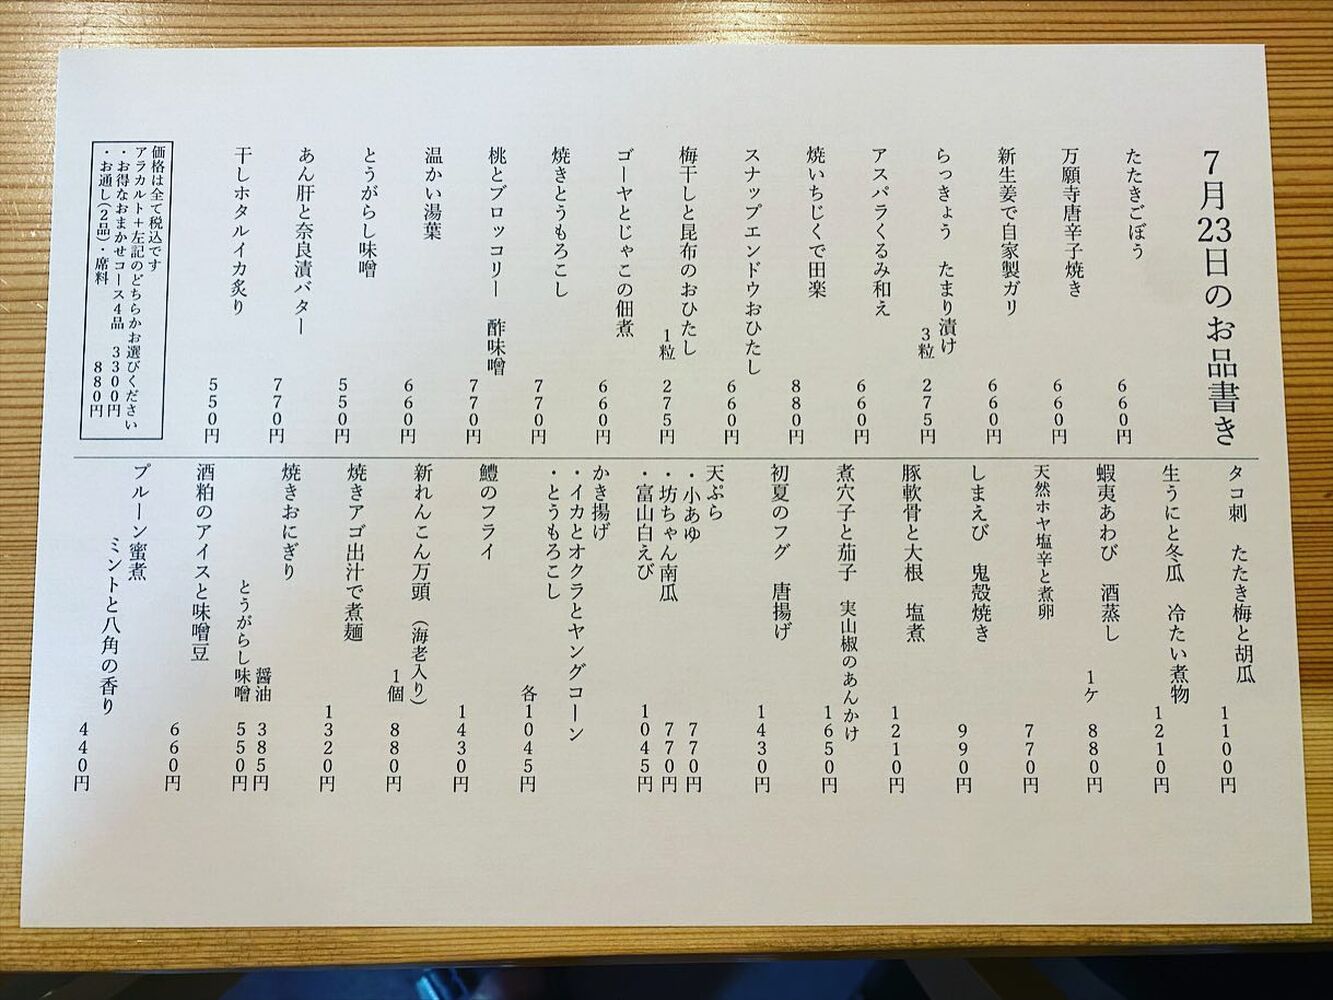 7月23日のお品書き
たたきごぼう
660円
万願寺唐辛子焼き
660円
新生姜で自家製ガリ
660円
らっきょう たまり漬け
3粒 275円
アスパラくるみ和え
660円
焼いちじくで田楽
880円
スナップエンドウおひたし
660円
梅干しと昆布のおひたし
1粒 275円
ゴーヤとじゃこの佃煮
660円
焼きとうもろこし
770円
桃とブロッコリー 酢味噌
770円
温かい湯葉
660円
とうがらし味噌
550円
あん肝と奈良漬バター
770円
干しホタルイカ炙り
550円
価格は全て税込です
アラカルト+左記のどちらかお選びください
・お得なおまかせコース4品 3300円
・お通し(2品)・席料 880円
タコ刺 たたき梅と胡瓜
1100円
生うにと冬瓜 冷たい煮物
1210円
蝦夷あわび 酒蒸し
1ケ 880円
天然ホヤ塩辛と煮卵
770円
しまえび 鬼殻焼き
990円
豚軟骨と大根 塩煮
1210円
煮穴子と茄子 実山椒のあんかけ
1650円
初夏のフグ 唐揚げ
1430円
天ぷら
・小あゆ 770円
・坊ちゃん南瓜 770円
・富山白えび 1045円
かき揚げ
・イカとオクラとヤングコーン
・とうもろこし
各1045円
鱧のフライ
1430円
新れんこん万頭 (海老入り)
1個 880円
焼きアゴ出汁で煮麺
1320円
焼きおにぎり
醤油 385円
とうがらし味噌 550円
酒粕のアイスと味噌豆
660円
プルーン蜜煮
ミントと八角の香り
440円